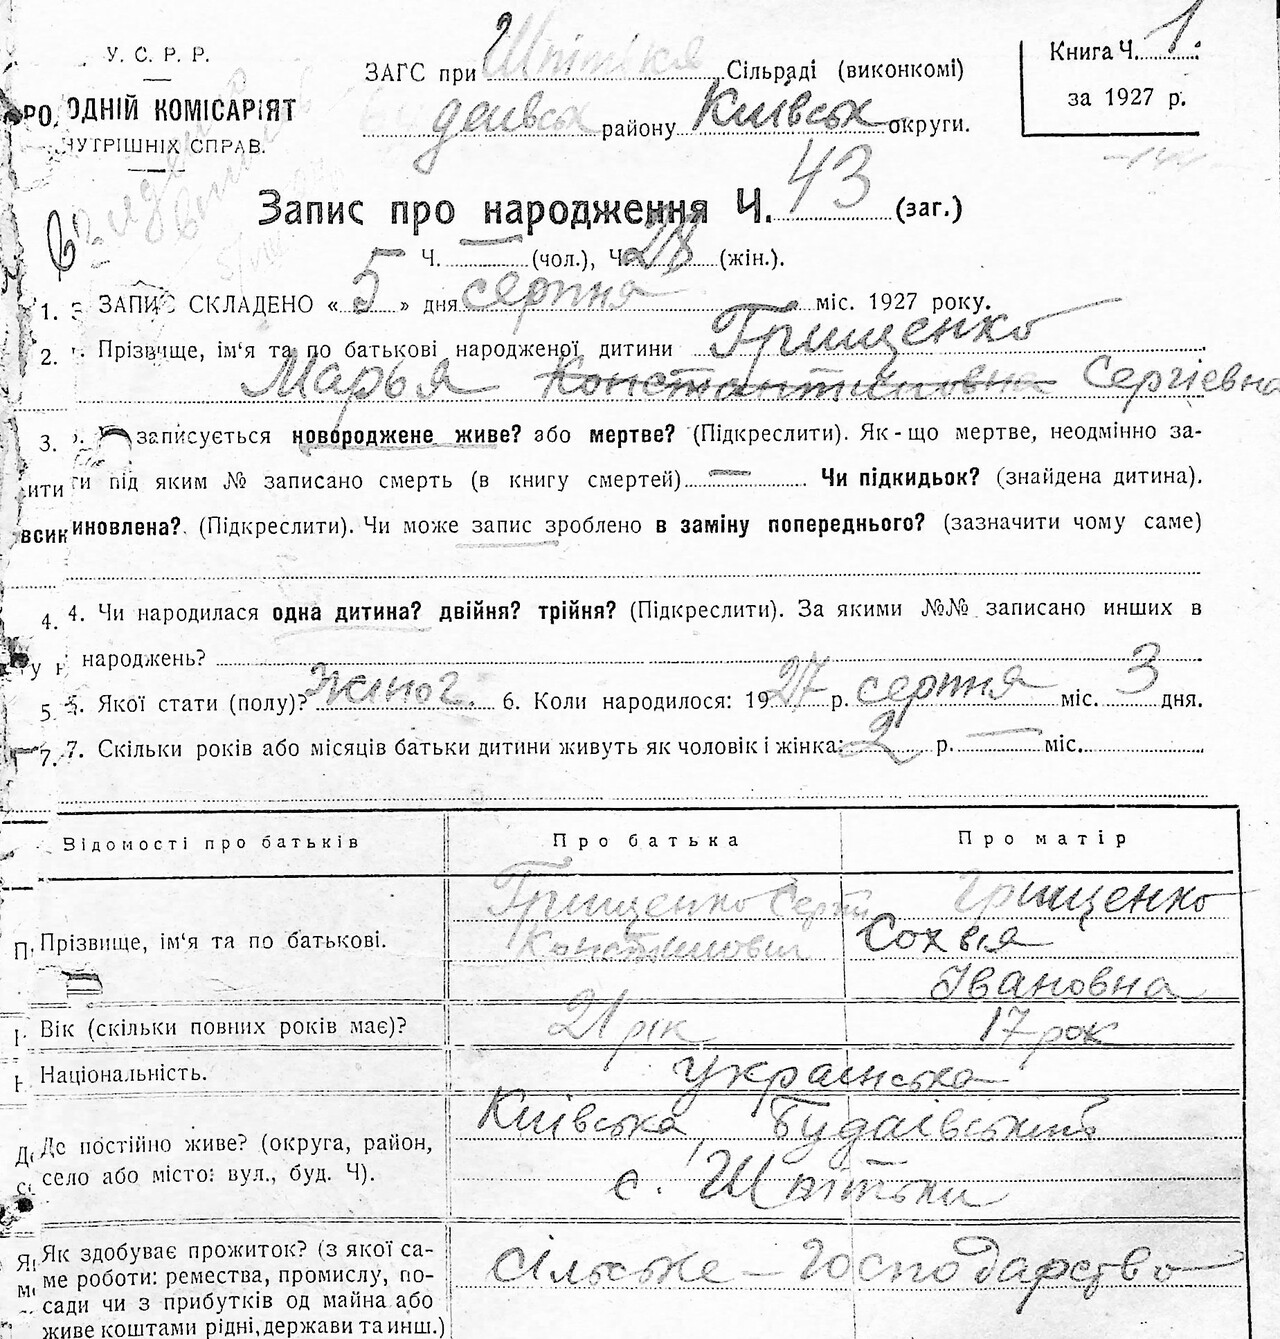 У. С. Р. Р.
ЗАГС при Шпітькі Сільраді (виконкомі)
Книга Ч. 1
РО. ОДНІЙ КОМІСАРІЯТ
деївськ району Київськ округи.
за 1927 р.
НУТРІШНІХ СПРАВ.
Запис про народження Ч. 43 (заг.)
Ч. — (чол.), Ч. 28 (жін.).
1. ЗАПИС СКЛАДЕНО « 5 » дня серпня міс. 1927 року.
2. Прізвище, ім'я та по батькові народженої дитини Грищенко
Марья Константиновна Сергієвна
3. записується новороджене живе? або мертве? (Підкреслити). Як-що мертве, неодмінно за-
ити ти під яким № записано смерть (в книгу смертей) — Чи підкидьок? (знайдена дитина).
всин иновлена? (Підкреслити). Чи може запис зроблено в заміну попереднього? (зазначити чому саме)
4. 4. Чи народилася одна дитина? двійня? трійня? (Підкреслити). За якими №№ записано инших в
у народжень?
5 5. Якої стати (полу)? жіноч. 6. Коли народилося: 1927 р. серпня міс. 3 дня.
7. 7. Скільки років або місяців батьки дитини живуть як чоловік і жінка: 2 р. — міс.
Відомості про батьків Про батька Про матір
Грищенко Сергій Грищенко
П. Прізвище, ім'я та по батькові. Константинович Сохвія
Івановна
Вік (скільки повних років має)? 21 рік 17 рок
Національність. українська
Київська, Будаївський
Де постійно живе? (округа, район,
село або місто: вул., буд. Ч). с. Шпітьки
Я Як здобуває прожиток? (з якої са- сільське-господарство
м ме роботи: ремества, промислу, по-
сади чи з прибутків од майна або
живе коштами рідні, держави та инш.)